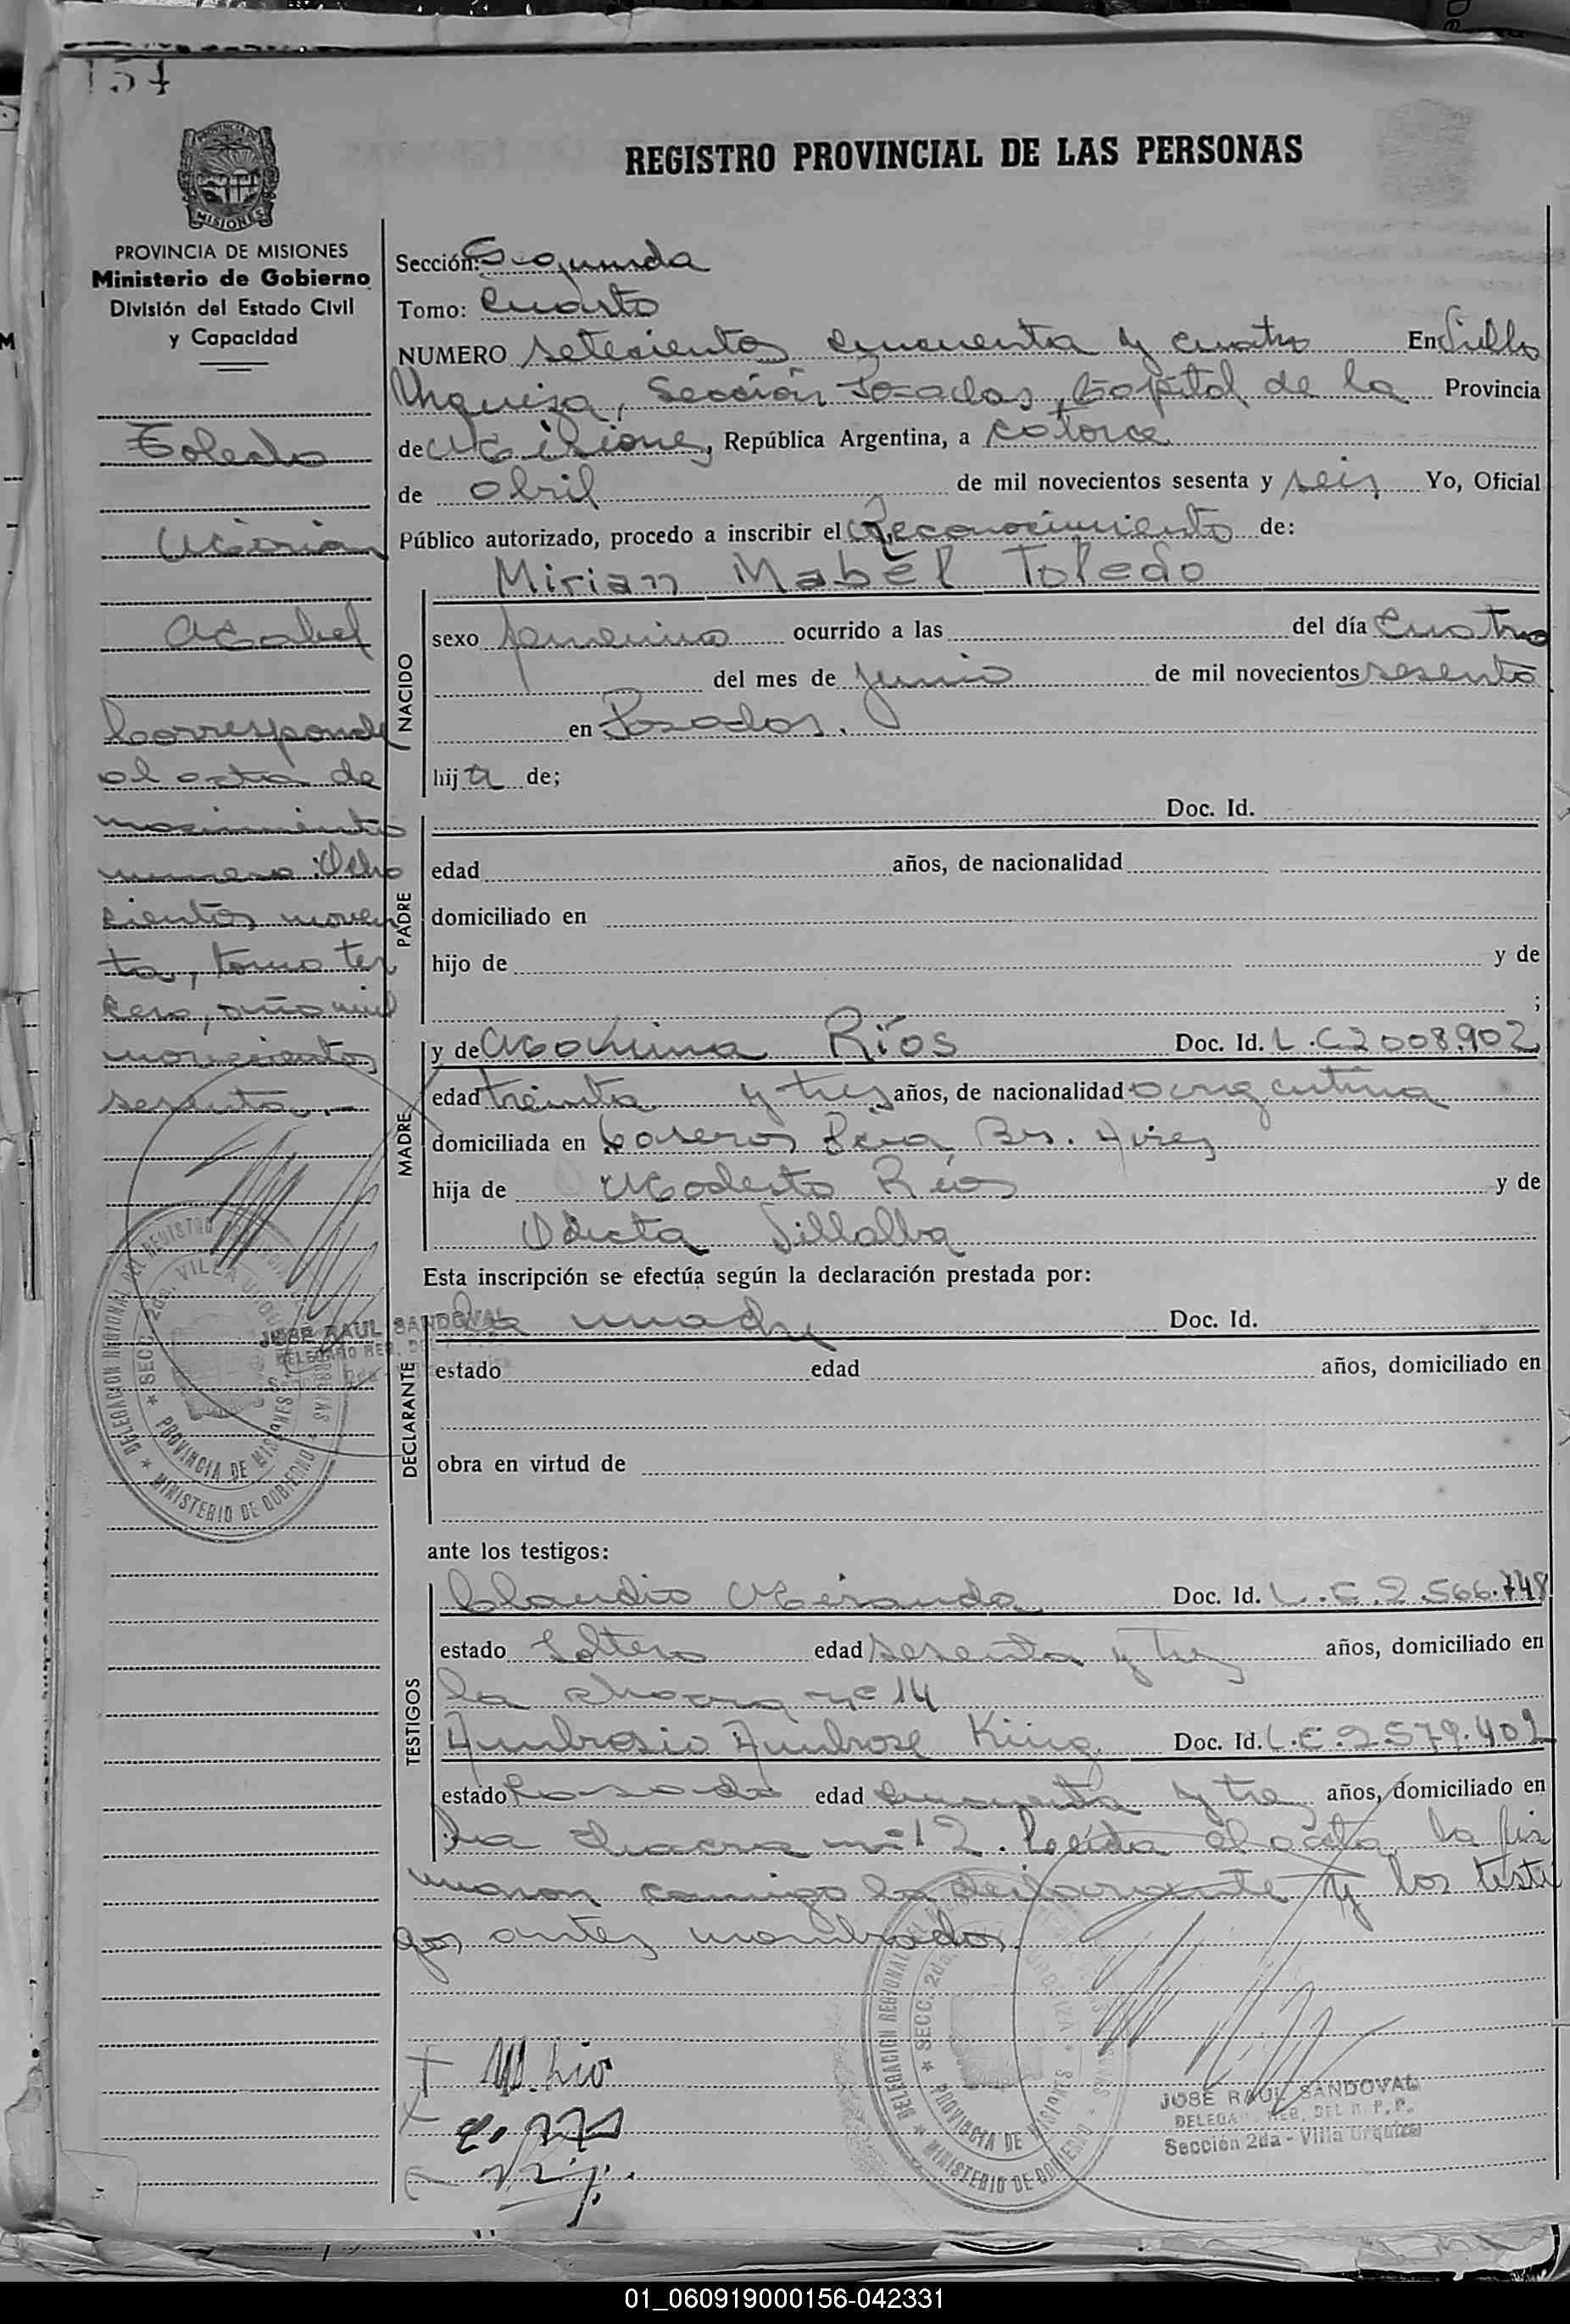 154
PROVINCIA DE MISIONES
Ministerio de Gobierno
División del Estado Civil
y Capacidad
Toledo
Mirian
Mabel
Corresponde
al acta de
nacimiento
numero: Ocho
cientos noven
ta, tomo ter
cero, año mil
novecientos
sesenta.-
REGISTRO PROVINCIAL DE LAS PERSONAS
Sección: Segunda
Tomo: Cuarto
NUMERO setecientos cincuenta y cuatro En Villa
Urquiza, Sección Posadas, Capital de la Provincia
de Misiones, República Argentina, a catorce
de abril de mil novecientos sesenta y seis Yo, Oficial
Público autorizado, procedo a inscribir el Reconocimiento de:
Mirian Mabel Toledo
NACIDO
sexo femenino ocurrido a las del día cuatro
del mes de junio de mil novecientos sesenta
en Posadas.
hija de;
PADRE
Doc. Id.
edad años, de nacionalidad
domiciliado en
hijo de y de
;
MADRE
y de Maximina Ríos Doc. Id. L.C.2008.902
edad treinta y tres años, de nacionalidad argentina
domiciliada en Caseros Pcia Bs. Aires
hija de Modesto Ríos y de
Villalba
Esta inscripción se efectúa según la declaración prestada por:
DECLARANTE
La madre Doc. Id.
estado edad años, domiciliado en
obra en virtud de
ante los testigos:
TESTIGOS
Claudio Miranda Doc. Id. L.E.2.566.748
estado Soltero edad sesenta y tres años, domiciliado en
la chacra nº 14
Ambrosio Ambrose King Doc. Id. L.E.2.579.402
estado Casado edad cincuenta y tres años, domiciliado en
la chacra nº 12. Leída el acta, la fir
maron conmigo la declarante y los testi
gos antes nombrados.
JOSE RAUL SANDOVAL
DELEGADO REG. DEL
DELEGACION REGIONAL DEL REGISTRO
SECC. 2da. VILLA URQUIZA
PROVINCIA DE MISIONES
MINISTERIO DE GOBIERNO
M. Rio
DELEGACION REGIONAL DEL
SECC. 2da. URQUIZA
PROVINCIA DE MISIONES
MINISTERIO DE GOBIERNO
JOSE RAUL SANDOVAL
DELEGA REG. DEL R. P. P.
Sección 2da - Villa Urquiza
01_060919000156-042331